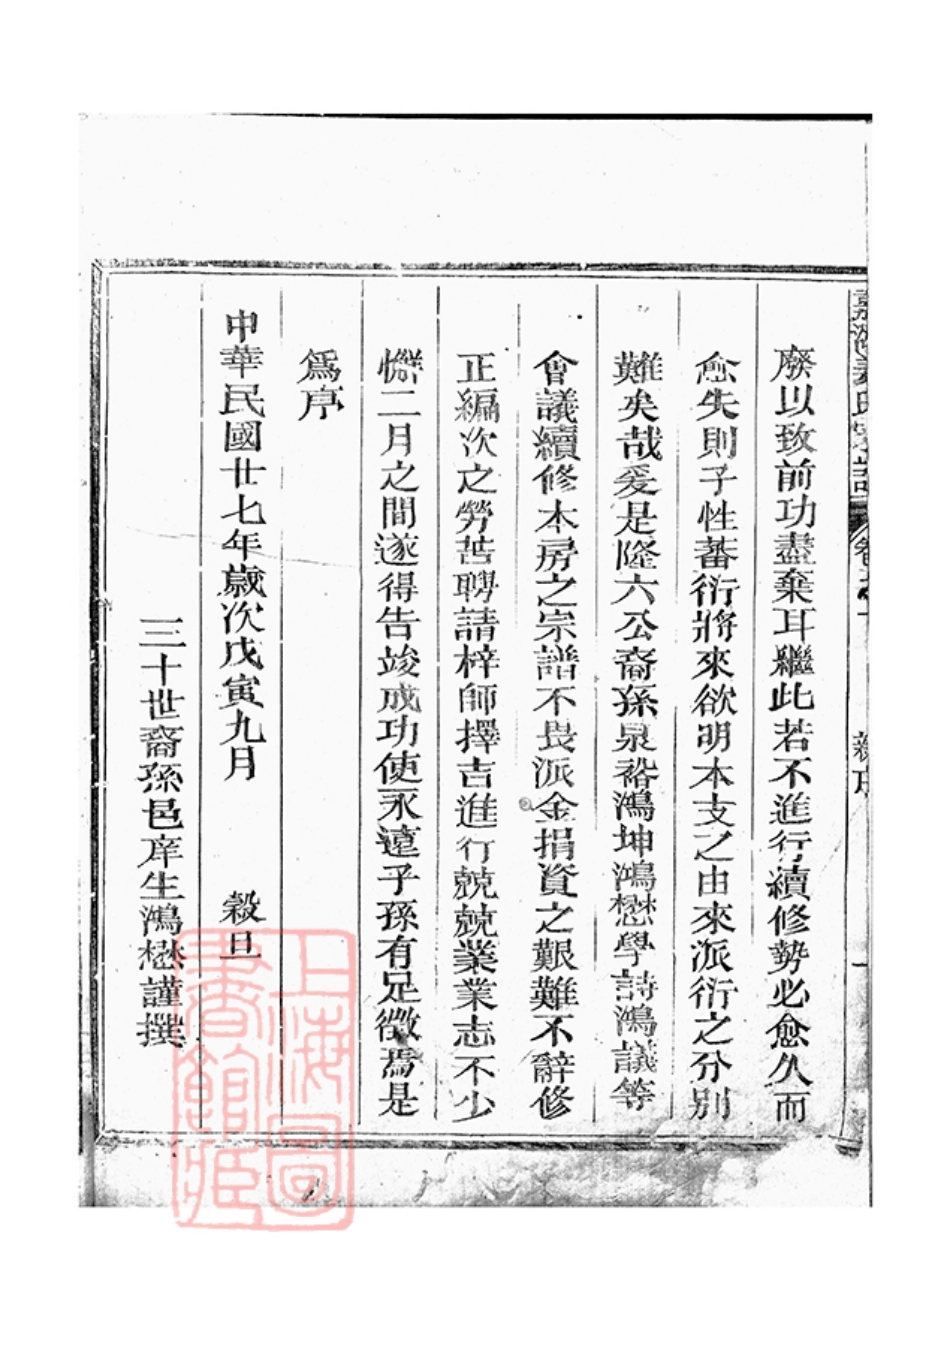 廢以致前功盡棄耳繼此若不進行續修勢必愈久而
愈失則子性蕃衍將來欲明本支之由來派衍之分別
難矣哉爰是隆六公裔孫泉裕鴻坤鴻懋學詩鴻議等
會議續修本房之宗譜不畏派金捐資之艱難不辭修
正編次之勞苦聘請梓師擇吉進行兢兢業業志不少
懈二月之間遂得告竣成功使永遠子孫有足徵焉是
爲序
中華民國廿七年歲次戊寅九月 穀旦
三十世裔孫邑庠生鴻懋謹撰
上海圖
書館藏